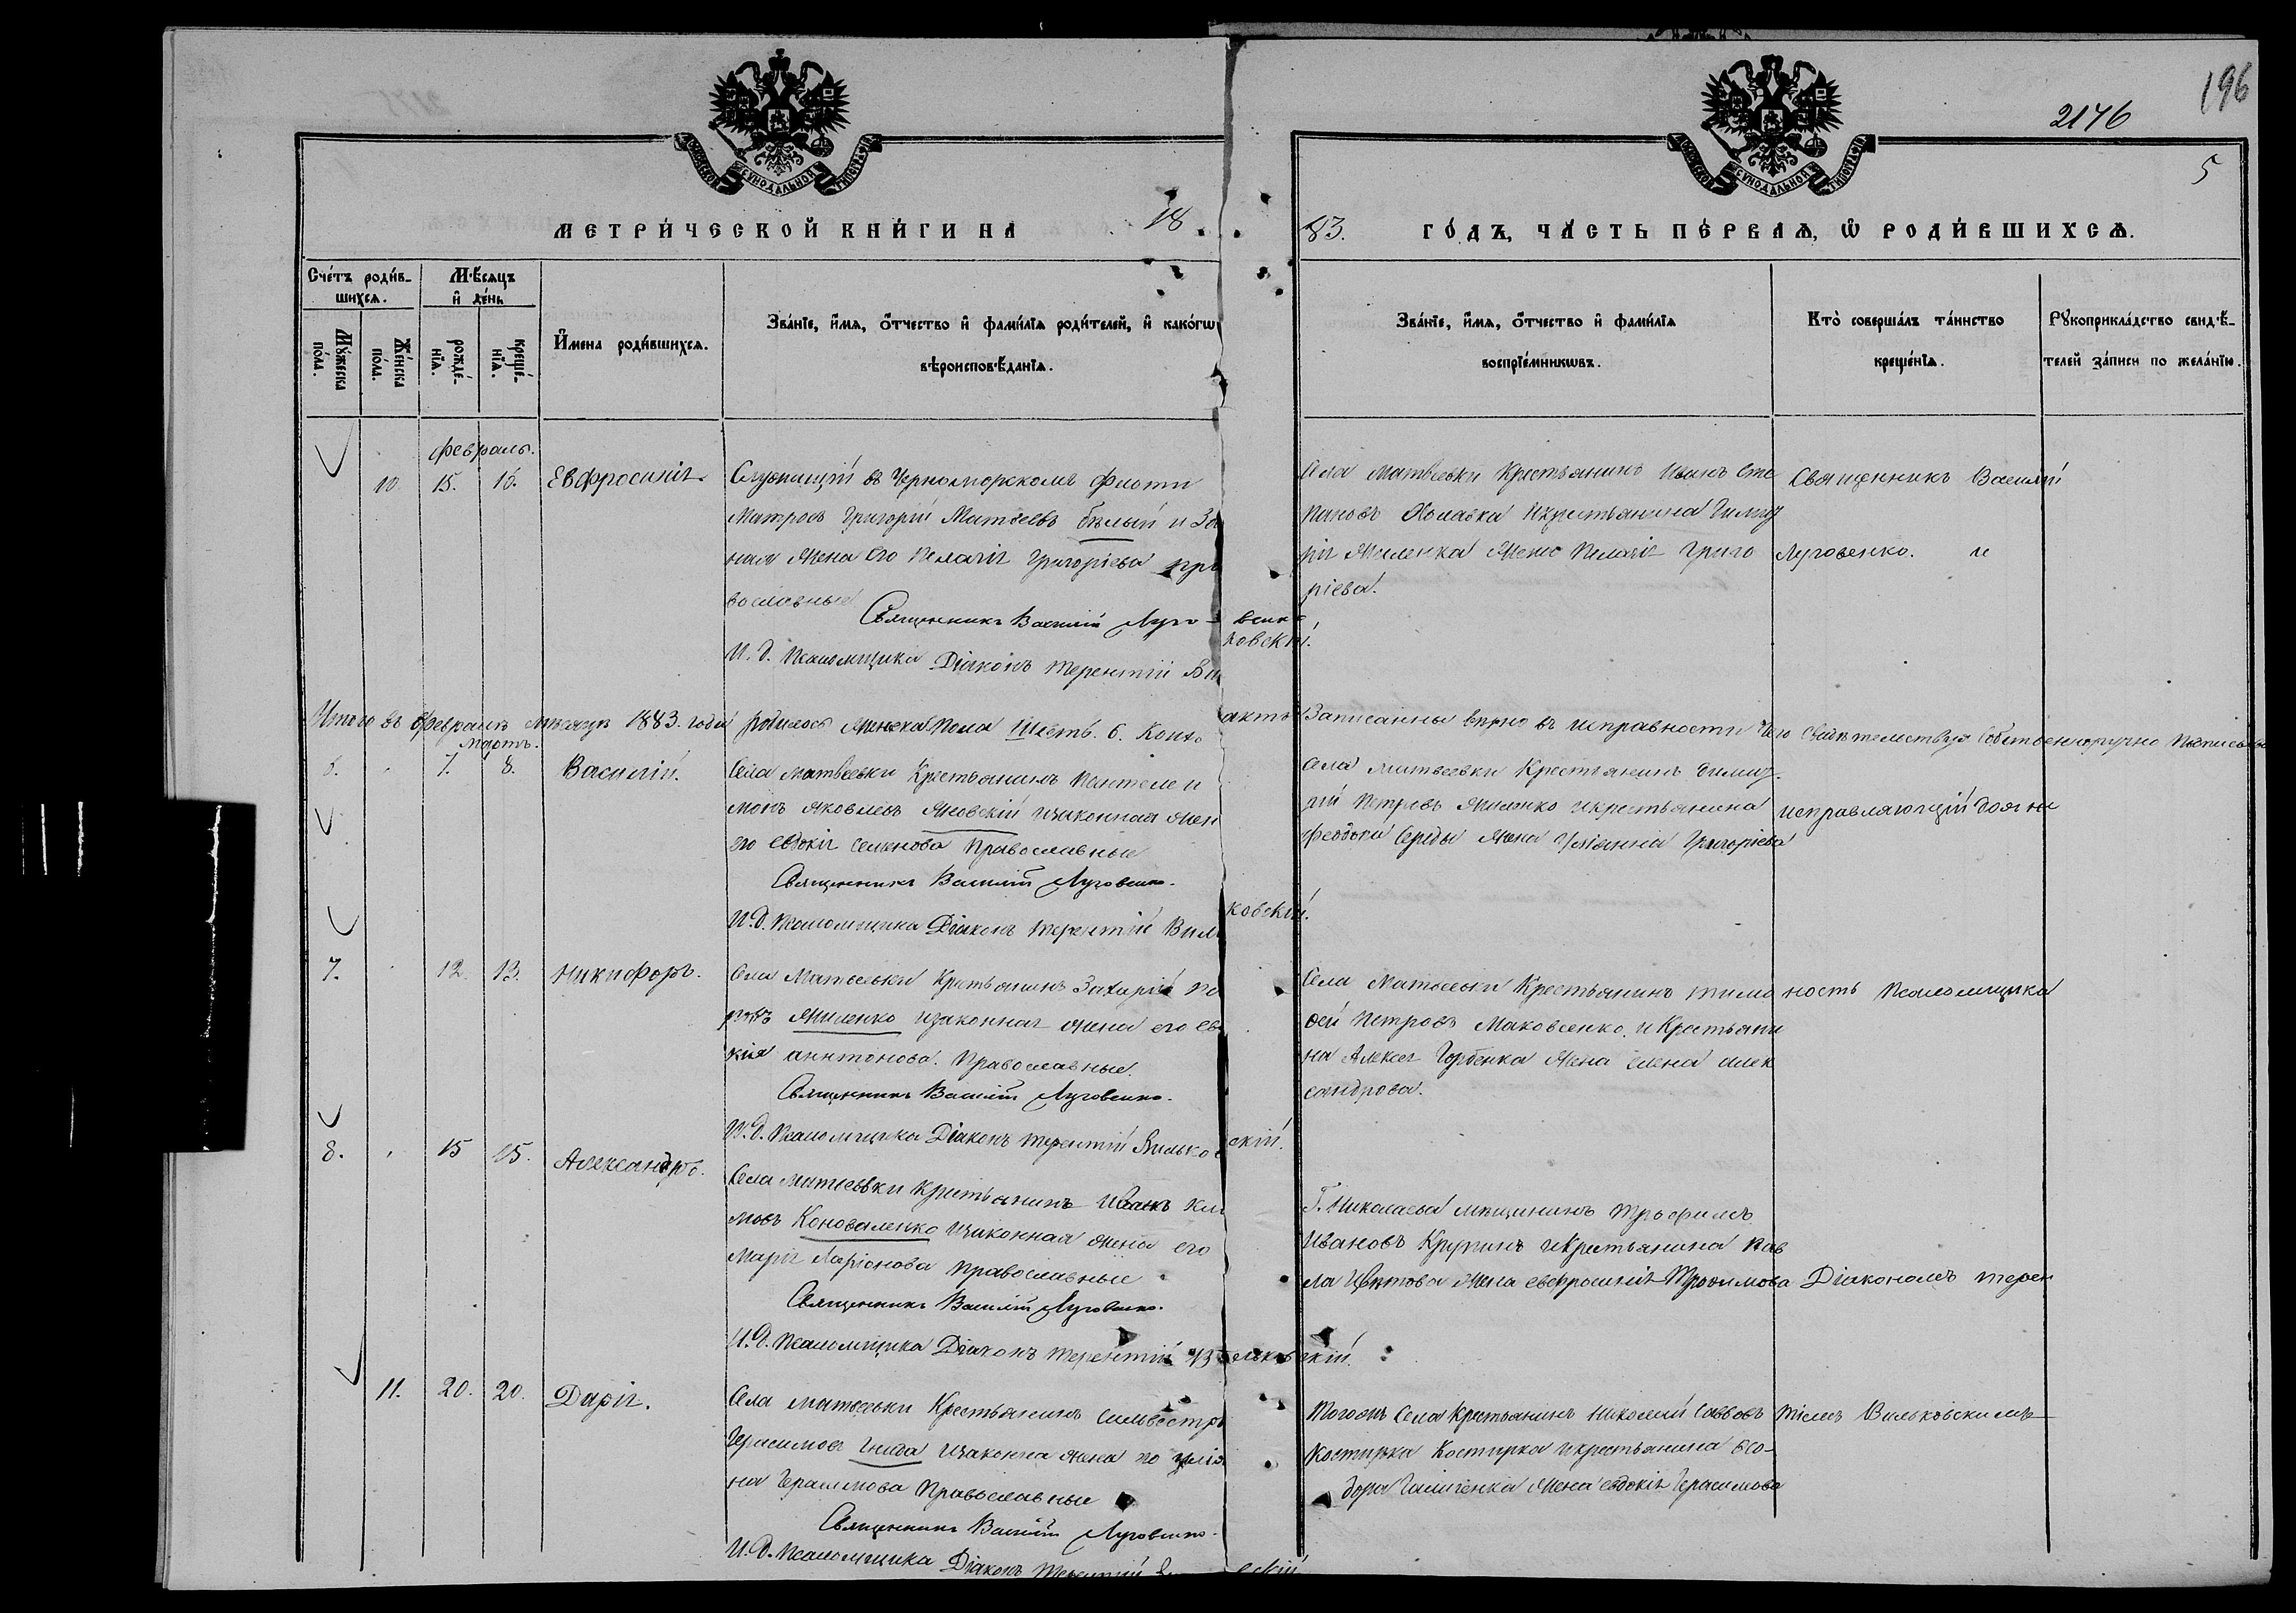 196
2176
5
МЕТРИ́ЧЕСКОЙ КНИ́ГИ НА 18
83. ГО́ДЪ, ЧА́СТЬ ПЕ́РВАЯ, Ѡ РОДИ́ВШИХСЯ.
Сче́тъ роди́в-
шихся.
Му́жеска
по́ла.
Же́нска
по́ла.
Мѣ́сяцъ
и҆ де́нь
рожде́-
нїя.
креще́-
нїя.
И҆мена роди́вшихся.
Зва́нїе, и҆́мя, ѻ҆́тчество и҆ фами́лїя роди́телей, и҆ како́гѡ
вѣроисповѣ́данїя.
Зва́нїе, и҆́мя, ѻ҆́тчество и҆ фами́лїя
воспрїе́мникѡвъ.
Кто̀ соверша́лъ та́инство
креще́нїя.
Рꙋкоприкла́дство свидѣ́-
телей за́писи по жела́нїю.
февраль.
10. 15. 16. Евфросинія
Служащій въ Черноморскомъ флоти
Матросъ Григорій Матвеевъ Бѣлый и За
ная жена его Пелагія Григоріева пра
вославные
Священникъ Василій Луго-венко
И. д. Псаломщика Діаконъ Терентій Виль ковскій.
Села Матвѣевки Крестьянинъ Иванъ Сте
пановъ икрестьянина Димит
рія Жиленка Жена Пелагія Григо
ріева.
Священникъ Василій
Луговенко. и
Итого въ Февралѣ мѣсяцѣ 1883. года родилось Женска Пола Шесть. 6. Записанны вѣрно въ исправности Чего Свидѣтельствуя Собственноручно
Мартъ.
6. 7. 8. Василій.
Села Матвѣевки Крестьянинъ Пантелеи
монъ Яковлевъ Яновскій изаконная жен
его Евдокія Семенова Православные
Священникъ Василій Луговенко.
И.д. Псаломщика Діаконъ Терентій Виль ковскій.
Села Матвеевки Крестьянинъ Димит-
рій Петровъ Жиленко икрестьянина
Феодосія Середы Жена Уліанна Григоріева
исправляющій должн
7. 12. 13. Никифоръ.
Села Матвеевки Крестьянинъ Захарій Пе
ровъ Жиленко изаконная жена его Ев
кія Антонова. Православные.
Священникъ Василій Луговенко.
И.д. Псаломщика Діаконъ Терентій Вилько скій.
Села Матвеевки Крестьянинъ Тимо
фей Петровъ Маковеенко. и Крестьяни
на Алексея Горбенка Жена Елена Алек
сандрова.
ность Псаломщика
8. 15 15. Александръ.
Села Матвеевки Крестьянинъ Иванъ Кли
мовъ Коноваленко изаконная жена его
Марія Ларіонова Православные
Священникъ Василій Луговенко.
И.д. Псаломщика Діаконъ Терентій Вилько вскій.
Г. Николаева мещининъ Трофимъ
Ивановъ Крупинъ икрестьянина Пав
ла Цвѣтова Жена евфросинія Трофимова
Діакономъ Терен
11. 20. 20. Дарія.
Села Матвеевки Крестьянинъ Сильвестръ
Герасимовъ Гнида изаконна жена его Улія
на Герасимова Православные
Священникъ Василій Луговенко.
И.д. Псаломщика Діаконъ Терентій скій
Тогожъ Села Крестьянинъ Николай Саввовъ
Костирка Костирка икрестьянина Ѳео-
дора Жена Евдокія Герасимова
тіемъ Вильковскимъ